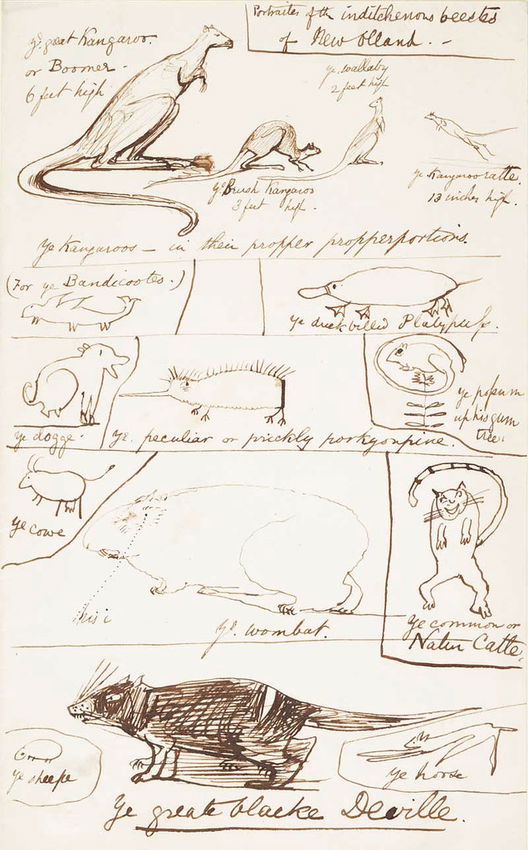 Portraites of the inditchenous beestes
of New Olland. -
ye great Kangaroo.
or Boomer -
6 feet high
ye wallaby
2 feet high
ye Kangarooratte
13 inches high.
ye Brush Kangaroo
3 feet high.
ye Kangaroos - in their propper propperportions.
(For ye Bandicootes.)
ye duckbilled Platypuss.
ye possum
up his gum
tree.
ye dogge
ye peculiar or prickly porkyonpine.
ye cowe
ye wombat.
ye common or
Natur Catte.
ye sheepe
ye horse
Ye greate blacke Deville.